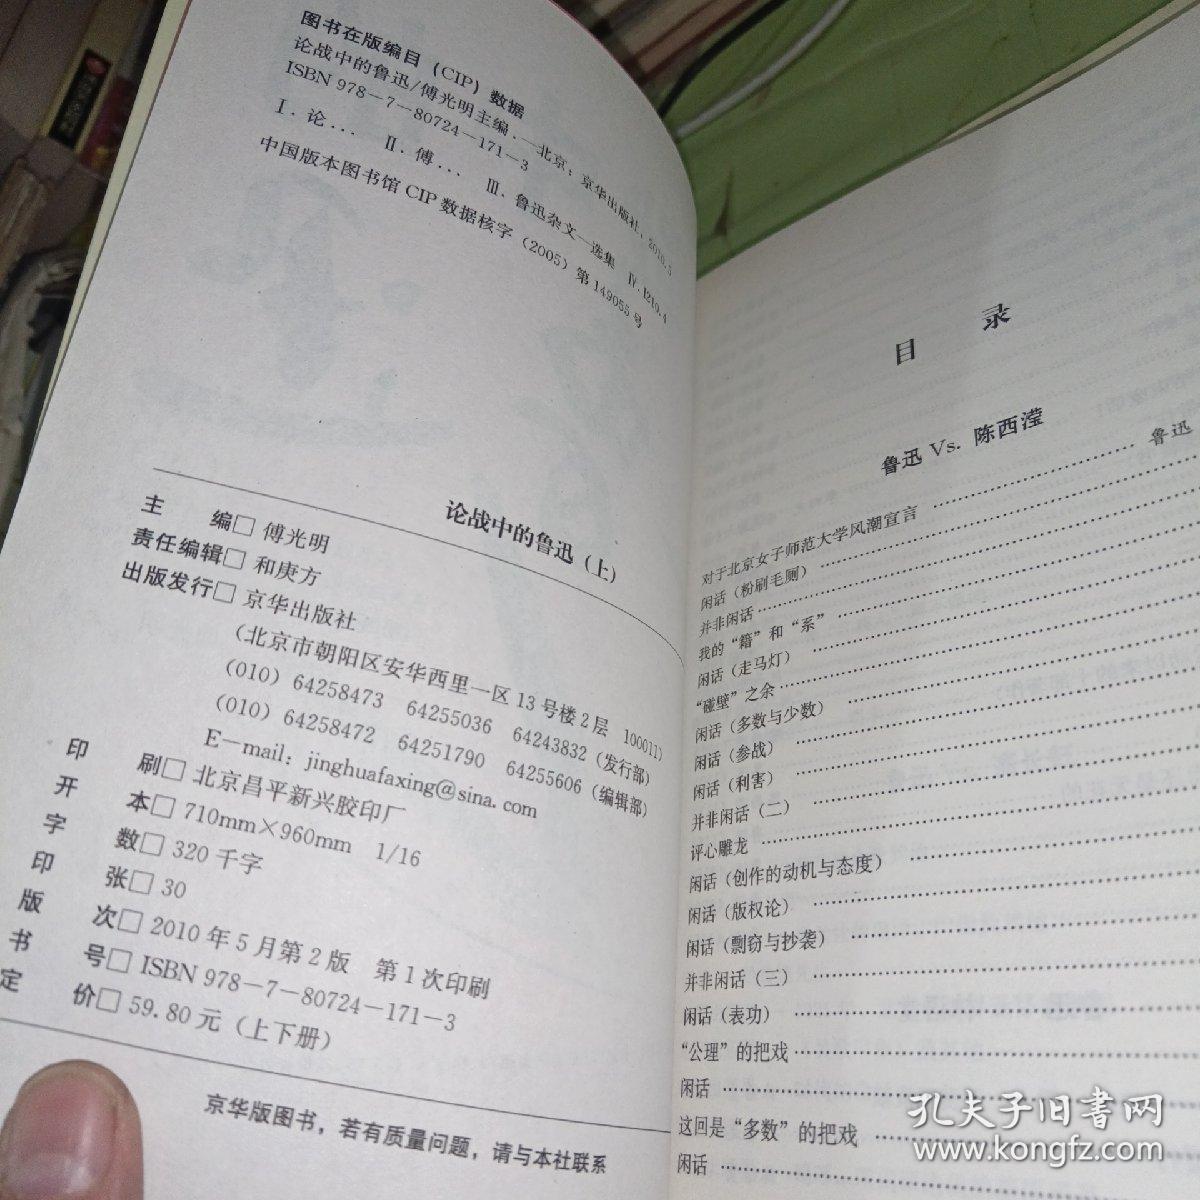 图书在版编目（CIP）数据
论战中的鲁迅/傅光明主编.—北京：京华出版社，2010.5
ISBN 978－7－80724－171－3
Ⅰ.论… Ⅱ.傅… Ⅲ.鲁迅杂文—选集 Ⅳ.I210.4
中国版本图书馆 CIP 数据核字（2005）第 149055 号
论战中的鲁迅（上）
主 编□ 傅光明
责任编辑□ 和庚方
出版发行□ 京华出版社
（北京市朝阳区安华西里一区 13 号楼 2 层 100011）
（010）64258473 64255036 64243832（发行部）
（010）64258472 64251790 64255606（编辑部）
E－mail：jinghuafaxing@sina.com
印 刷□ 北京昌平新兴胶印厂
开 本□ 710mm×960mm 1/16
字 数□ 320 千字
印 张□ 30
版 次□ 2010 年 5 月第 2 版 第 1 次印刷
书 号□ ISBN 978－7－80724－171－3
定 价□ 59.80 元（上下册）
京华版图书，若有质量问题，请与本社联系
目 录
鲁迅 Vs. 陈西滢
对于北京女子师范大学风潮宣言 …… 鲁迅
闲话（粉刷毛厕）
并非闲话
我的“籍”和“系”
闲话（走马灯）
“碰壁”之余
闲话（多数与少数）
闲话（参战）
闲话（利害）
并非闲话（二）
评心雕龙
闲话（创作的动机与态度）
闲话（版权论）
闲话（剽窃与抄袭）
并非闲话（三）
闲话（表功）
“公理”的把戏
闲话
这回是“多数”的把戏
闲话
孔夫子旧书网
www.kongfz.com